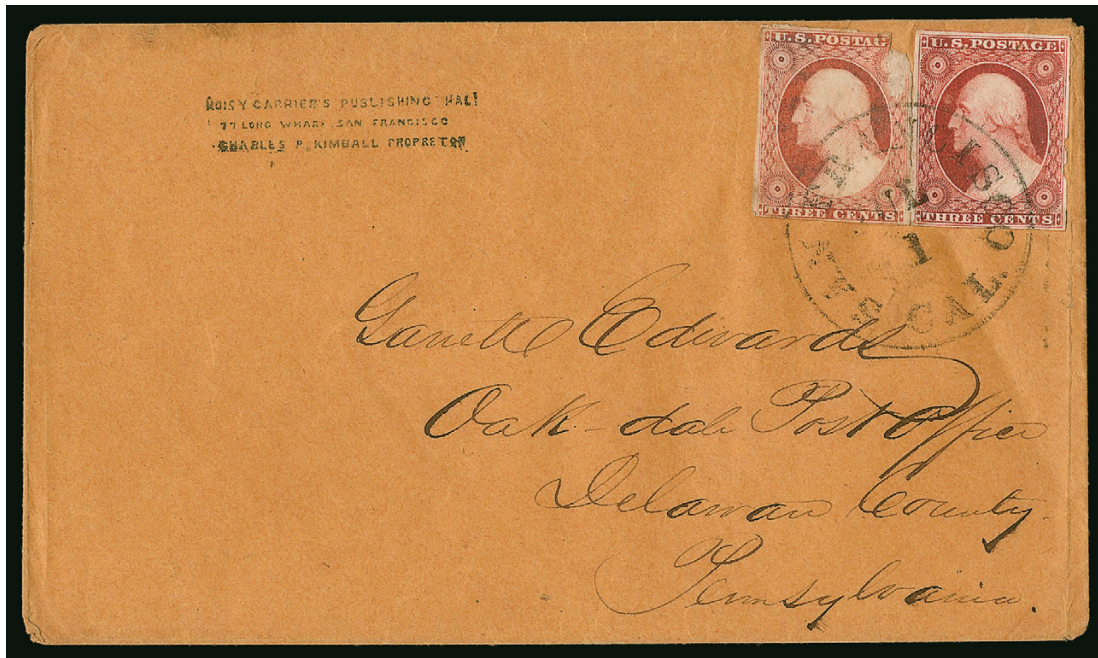 NOISY CARRIER'S PUBLISHING HALL
77 LONG WHARF, SAN FRANCISCO
CHARLES P. KIMBALL PROPRETOR
U.S. POSTAGE
THREE CENTS
U.S. POSTAGE
THREE CENTS
SAN FRANCISCO CAL.
JUL
1
Garrette Edwards
Oak-dale Post Office
Delaware County
Pennsylvania.